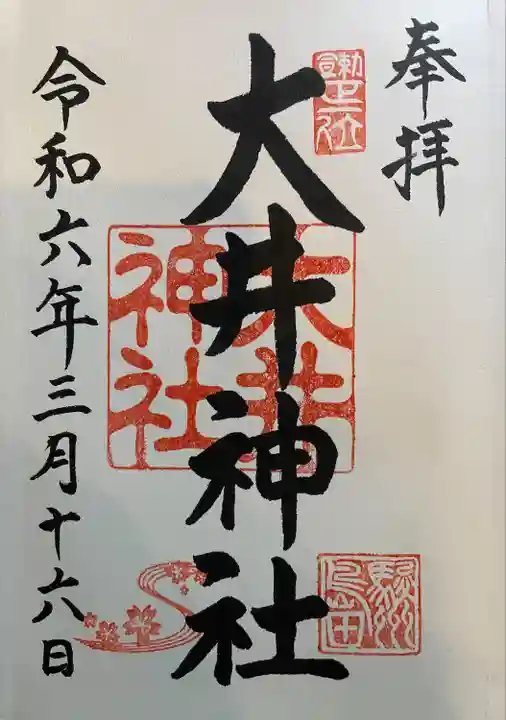 奉拝
大井神社
大井神社
駿州島田
令和六年三月十六日